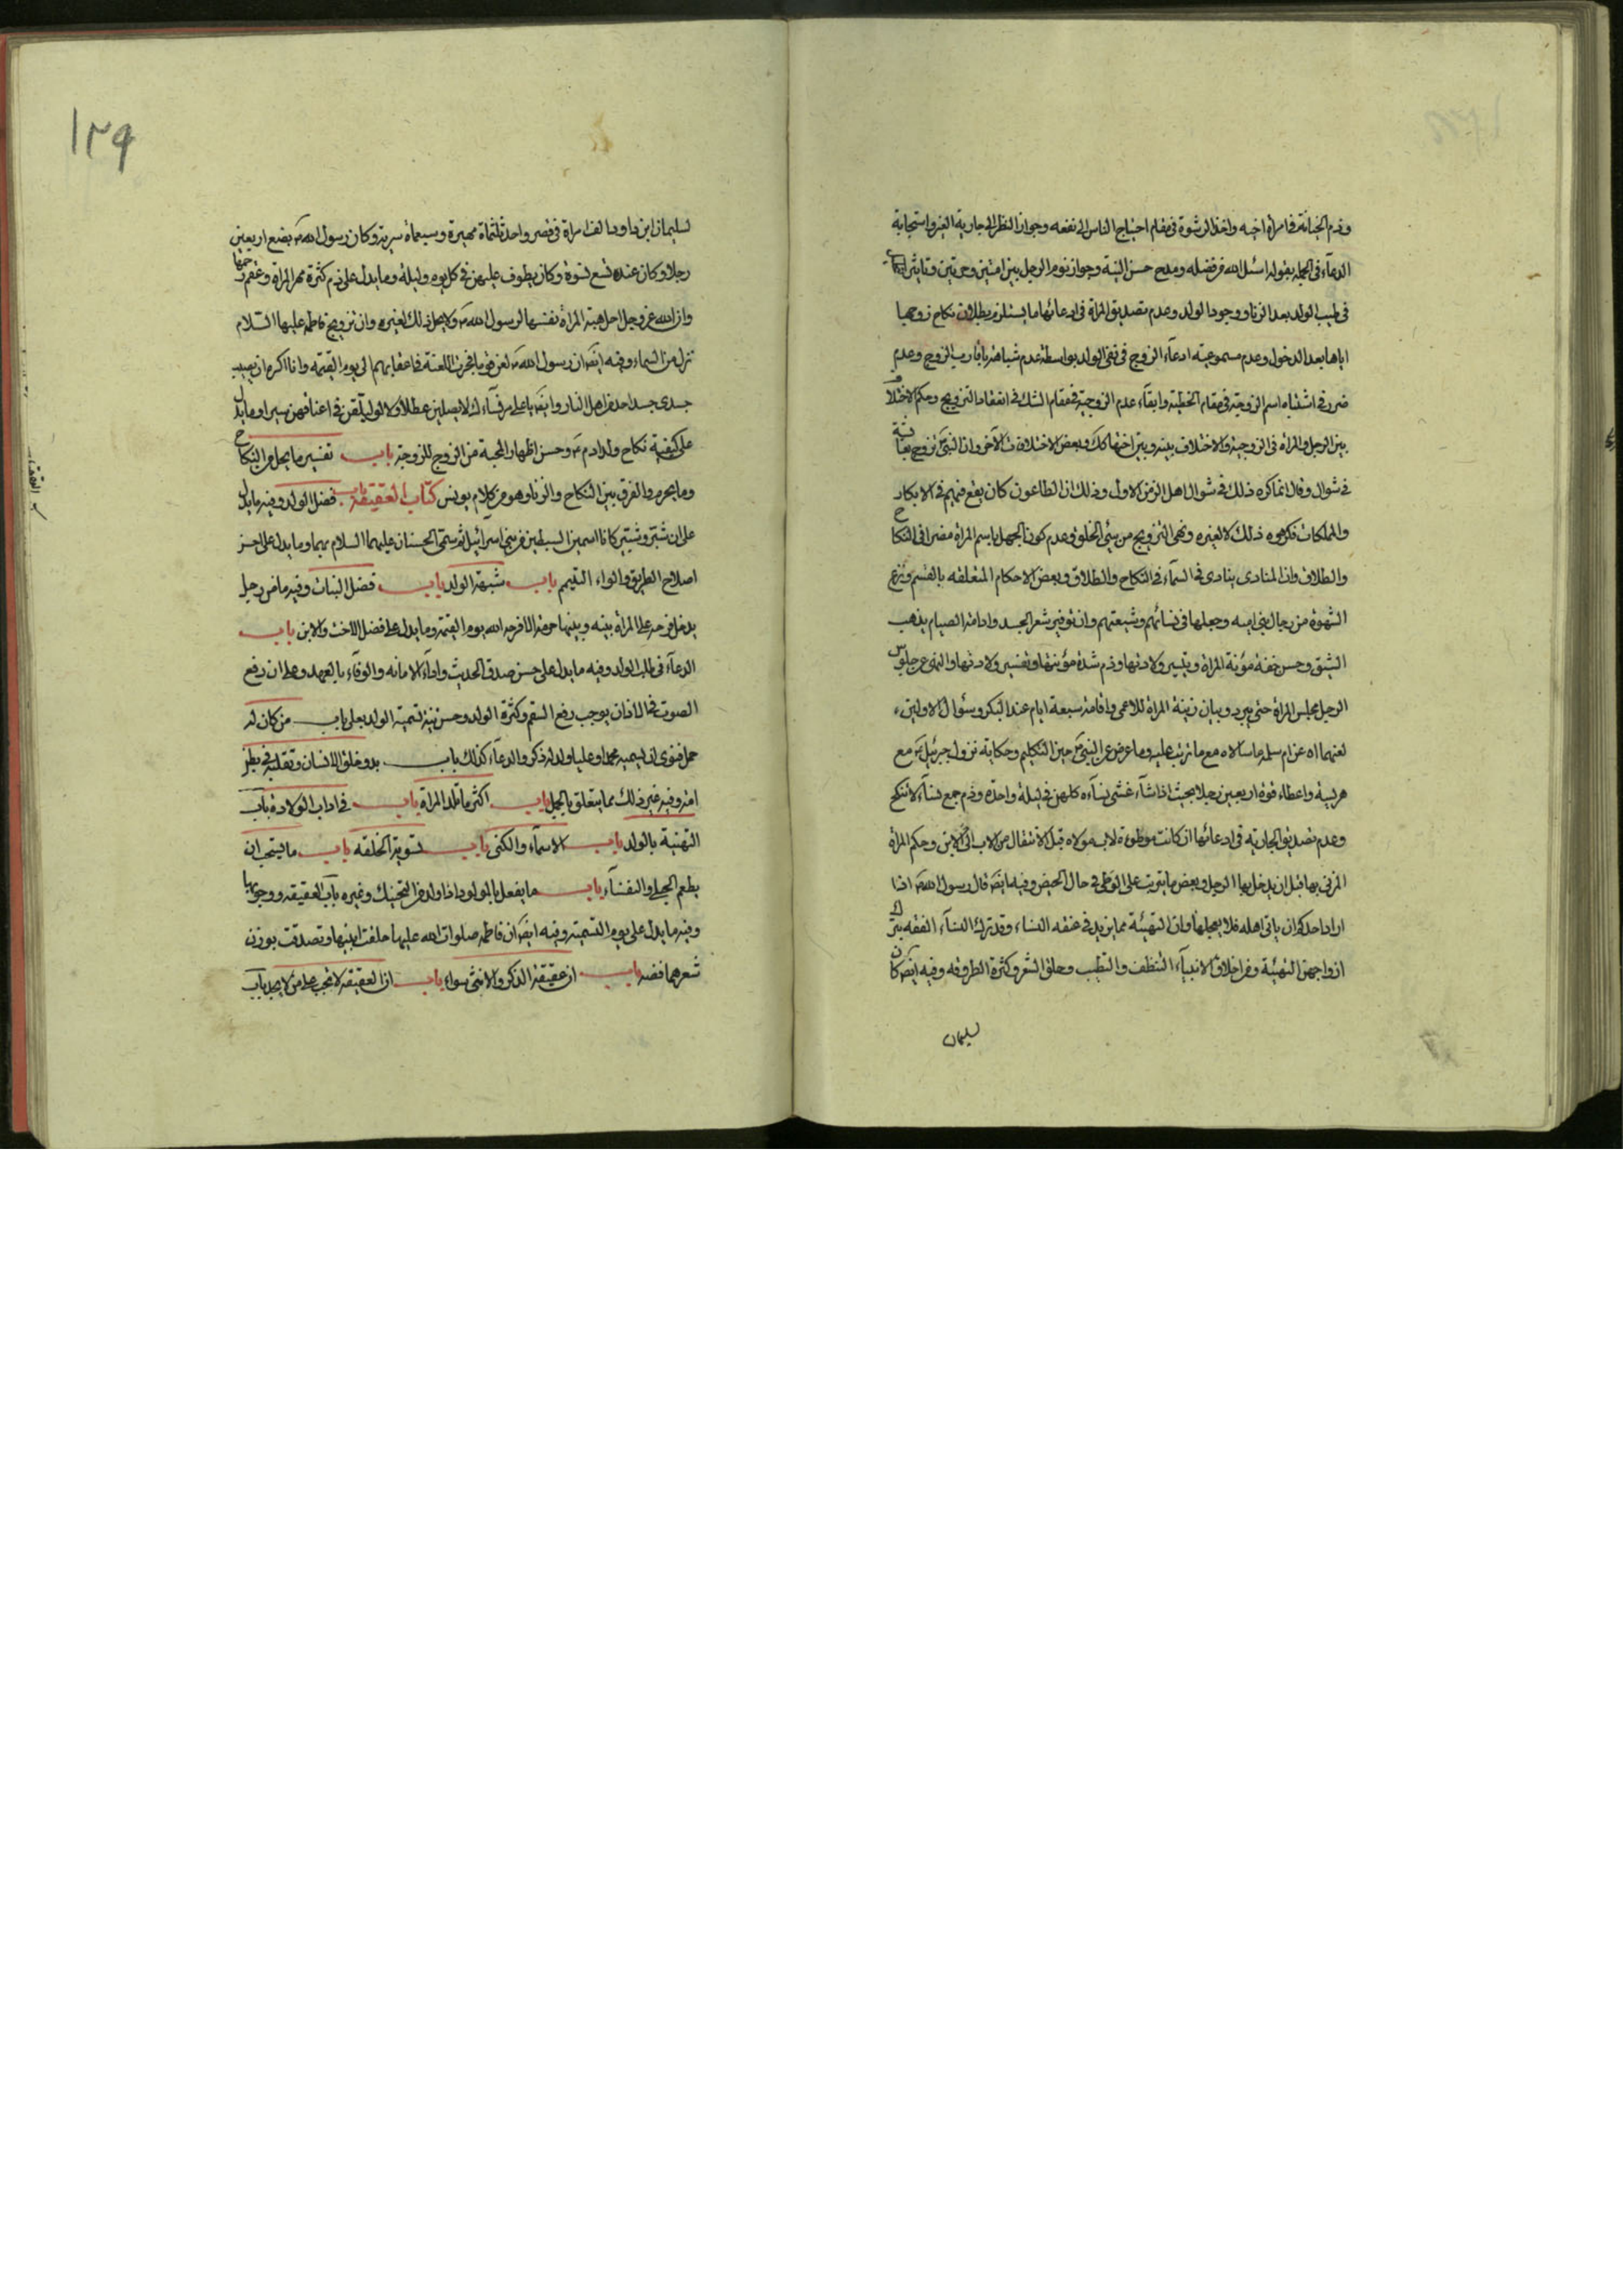 وذم الخيانة فى امرأة اخيه واخذ الرشوة فى مقام احتياج الناس الى نفعه وجواز النظر الى جارية الغير واستجابة
الدعاء فى الجملة بقوله اسئل الله من فضله ومدح حسن النية وجواز نوم الرجل بين امتين وحرتين وتاثير
فى طيب الولد بعد الزنا ووجود الولد وعدم تصديق المراة فى ادعائها ما يستلزم بطلان نكاح زوجها
اياها بعد الدخول وعدم مسموعية ادعاء الزوج فى نفى الولد بواسطة عدم شباهته باقارب الزوج وعدم
ضرر فى اشتباه اسم الزوجة فى مقام الخطبة وابقاء عدم الزوجية فى مقام الشك فى انعقاد التزويج وحكم الاختلاف
بين الرجل والمراة فى الزوجية والاختلاف بينه وبين اختها كك وبعض الاختلاف الآخر وان النبى ص تزوج بعايشة
فى شوال وقال انما كره ذلك فى شوال اهل الزمن الاول وذلك ان الطاعون كان يقع فيهم فى الابكار
والمملكات فكرهوه ذلك لا لغيره ونهى التزويج من سيئ الخلق وعدم كون الجهل باسم المراة مضرا فى النكاح
والطلاق وان المنادى ينادى فى السماء فى النكاح والطلاق وبعض الاحكام المتعلقه بالقسم ونزع
الشهوة من رجال بنى اميه وجعلها فى نسائهم وشيعتهم وان توفير شعر الجسد وادامة الصيام يذهب
الشبق وحسن خفة مؤنة المراة وتيسير ولادتها وذم شدة مؤنتها وتعسير ولادتها والنهى عن جلوس
الرجل مجلس المراة حتى يبرد وبيان زينة المراة للاعمى واقامة سبعة ايام عند البكر وسؤال الاولين
لعنهما اه عن ام سلمه ما سالاه مع ما ترتب عليه وما عرض عن النبى ص حين التكليم وحكاية نزول جبرئيل ع مع
هريسة واعطاء قوة اربعين رجلا بحيث اذا شاء غشى نساءه كلهن فى ليلة واحدة وذم جمع نساء لا تنكح
وعدم تصديق الجارية فى ادعائها ان كانت موطوءة لاب مولاه قبل الانتقال من الاب الى الابن وحكم المراة
المزنى بها قبل ان يدخل بها الرجل وبعض ما يترتب على الوطى فى حال الحيض وفيه ايضا قال رسول الله ص اذا
اراد احدكم ان ياتى اهله فلا يعجلها وان التهيئة مما يزيد فى عفة النساء وقد ترك النساء العفه بترك
ازواجهن التهيئة ومن اخلاق الانبياء التنظف والتطيب وحلق الشعر وكثرة الطروقه وفيه ايضا كان
سليمان
١٢٩
لسليمان ابن داود الف امراة فى قصر واحد ثلثمائة مهيرة وسبعمائة سرية وكان رسول الله ص بضع اربعين
رجلا وكان عنده تسع نسوة وكان يطوف عليهن فى كل يوم وليلة وما يدل على ذم كثرة مهر المراة وعقم رحمها
وان الله عز وجل احل هبة المراة نفسها لرسول الله ص ولا يحل ذلك لغيره وان تزويج فاطمة عليها السلام
نزل من السماء وفيه ايضا ان رسول الله ص لعن قوما فجرت اللعنة فى اعقابهم الى يوم القيمة وانا اكره ان يصيب
جسدى جسد احد من اهل النار وايضا يا على مر نساءك لا يصلين عطلا ولا لو ليعلقن فى اعناقهن سيرا وما يدل
على كيفية نكاح ولد ادم ع وحسن اظهار المحبة من الزوج للزوجة باب تفسير ما يحل من النكاح
وما يحرم والفرق بين النكاح والزنا وهو من كلام يونس كتاب العقيقة باب فضل الولد وفيه ما يدل
على ان شبر وشبير كانا اسمين السبطين من بنى اسرائيل ثم سمى الحسنان عليهما السلام بهما وما يدل على اجر
اصلاح الطريق وايواء اليتيم باب شبهة الولد باب فضل البنات وفيه ما من رجل
يدخل فرحة على امراة بينه وبينها حرمة الا فرحه الله يوم القيمة وما يدل على فضل الاخت والابن باب
الدعاء فى طلب الولد وفيه ما يدل على حسن صدق الحديث واداء الامانه والوفاء بالعهد وعلى ان رفع
الصوت فى الاذان يوجب رفع السقم وكثرة الولد وحسن نية تسمية الولد بعلى باب من كان له
حمل فنوى ان يسميه محمدا وعليا ولد له ذكر والدعاء كذلك باب بدو خلق الانسان وتقلبه فى بطن
امه وفيه غير ذلك مما يتعلق بالحمل باب اكثر ما تلد المراة باب فى اداب الولادة باب
التهنية بالولد باب الاسماء والكنى باب تسوية الخلقه باب ما يستحب ان
يطعم الحبلى والنفساء باب ما يفعل بالمولود اذا ولد من التحنيك وغيره باب العقيقه ووجوبها
وفيه ما يدل على يوم التسمية وفيه ايضا ان فاطمة صلوات الله عليها حلقت ابنيها وتصدقت بوزن
شعرهما فضه باب ان عقيقة الذكر والانثى سواء باب ان العقيقة لا تجب على من لا يجد باب